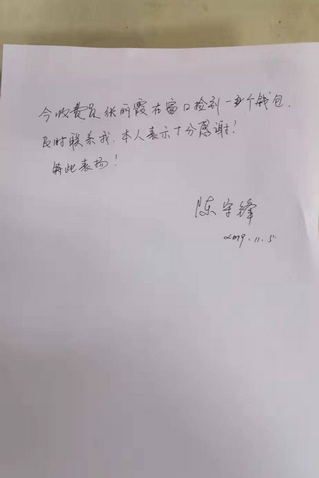 今收费员张丽霞在窗口捡到一个钱包,
及时联系我,本人表示十分感谢!
特此表扬!
陈宇锋
2019.11.5